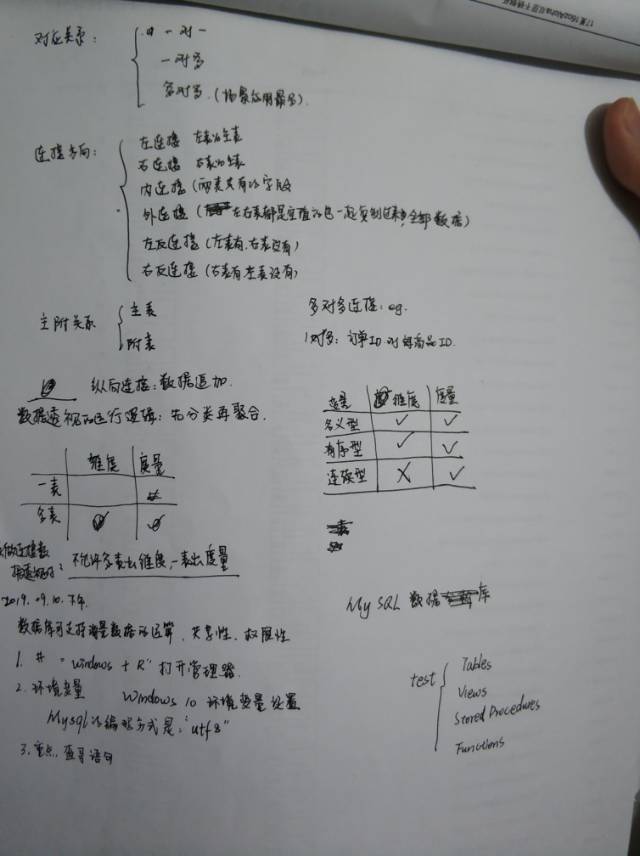 对应关系：
一对一
一对多
多对多（场景应用最多）
连接方向：
左连接 左表为主表
右连接 右表为主表
内连接（两表共有的字段
外连接（左右表都是空值的也一起复制过来，全部数据）
左反连接（左表有，右表没有）
右反连接（右表有左表没有）
主附关系
主表
附表
多对多连接：eg.
1对多：订单ID对 商品ID.
纵向连接：数据追加.
数据透视的运行逻辑：先分类再聚合.
变量 维度 度量
名义型 ✓ ✓
有序型 ✓ ✓
连续型 X ✓
维度 度量
一表
多表
不允许多表出维度，一表出度量
2019.09.10.下午.
My SQL 数据库
数据库可支持海量数据的运算，共享性，权限性
1. 井 "windows + R" 打开管理器.
2. 环境变量 Windows 10 环境变量设置
Mysql的编码方式是："utf8"
3. 重点，查寻语句
test
Tables
Views
Stored Procedures
Functions